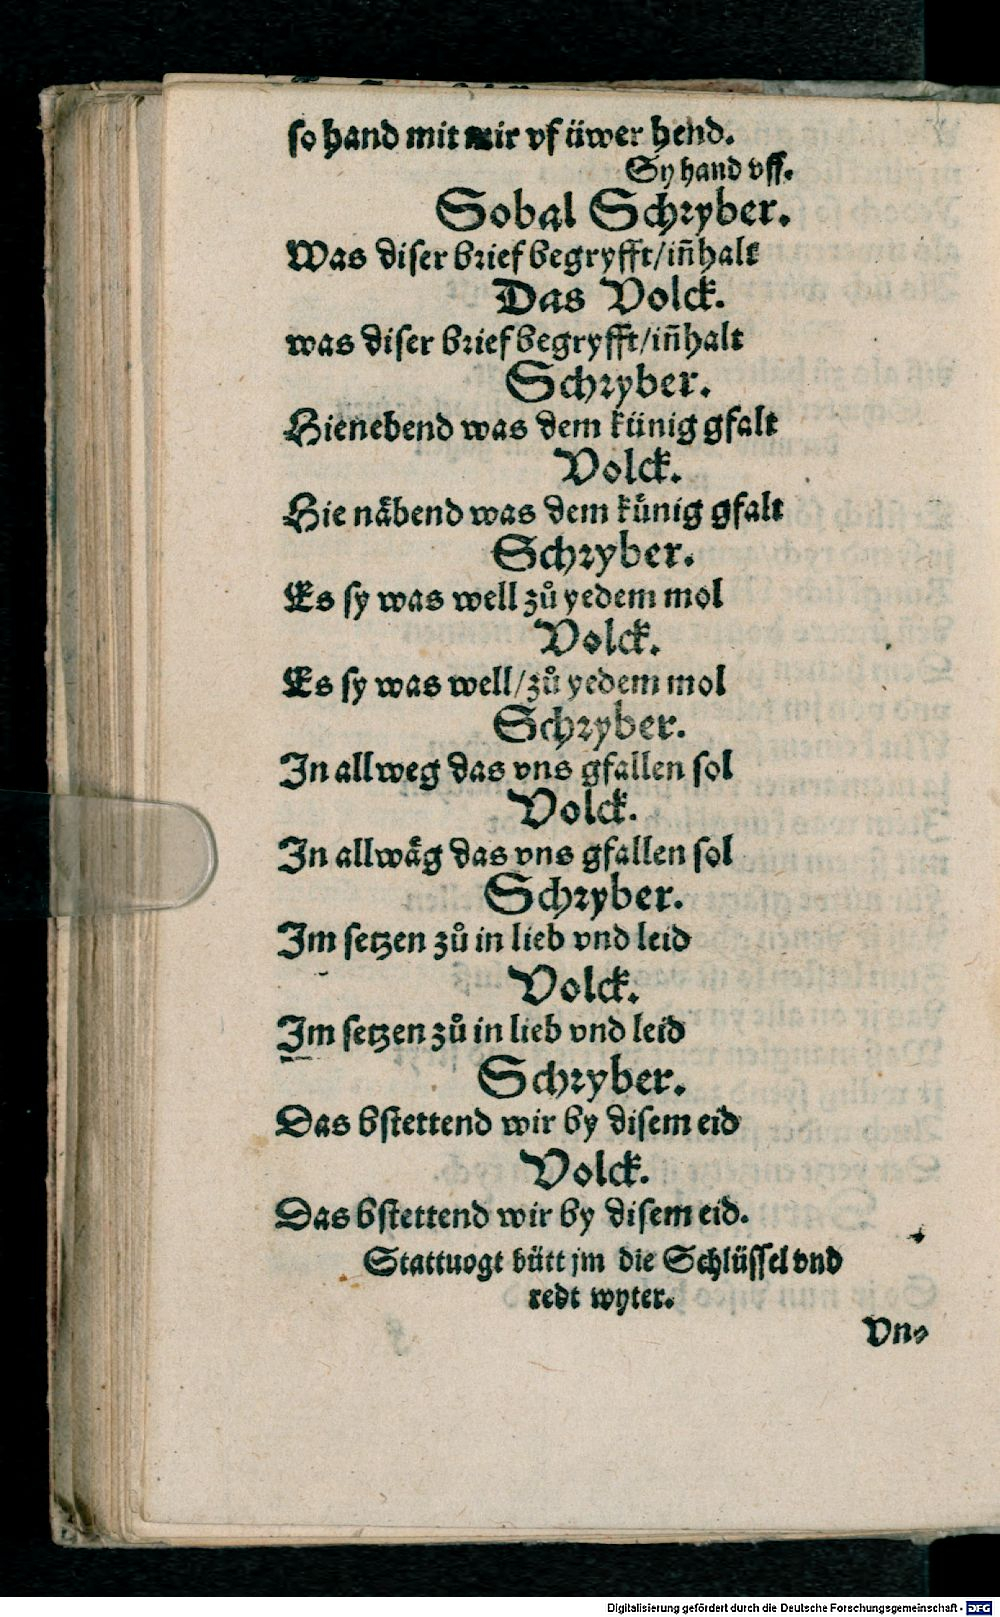 so hand mit mir vf üwer hend.
Sy hand vff.
Sobal Schryber.
Was diser brief begryfft/iñhalt
Das Volck.
was diser brief begryfft/iñhalt
Schryber.
Hienebend was dem künig gfalt
Volck.
Hie nåbend was dem künig gfalt
Schryber.
Es sy was well zů yedem mol
Volck.
Es sy was well/zů yedem mol
Schryber.
In allweg das vns gfallen sol
Volck.
In allwåg das vns gfallen sol
Schryber.
Im setzen zů in lieb vnd leid
Volck.
Im setzen zů in lieb vnd leid
Schryber.
Das bstettend wir by disem eid
Volck.
Das bstettend wir by disem eid.
Stattuogt bütt jm die Schlüssel vnd
redt wyter.
Vn⸗
Digitalisierung gefördert durch die Deutsche Forschungsgemeinschaft - DFG